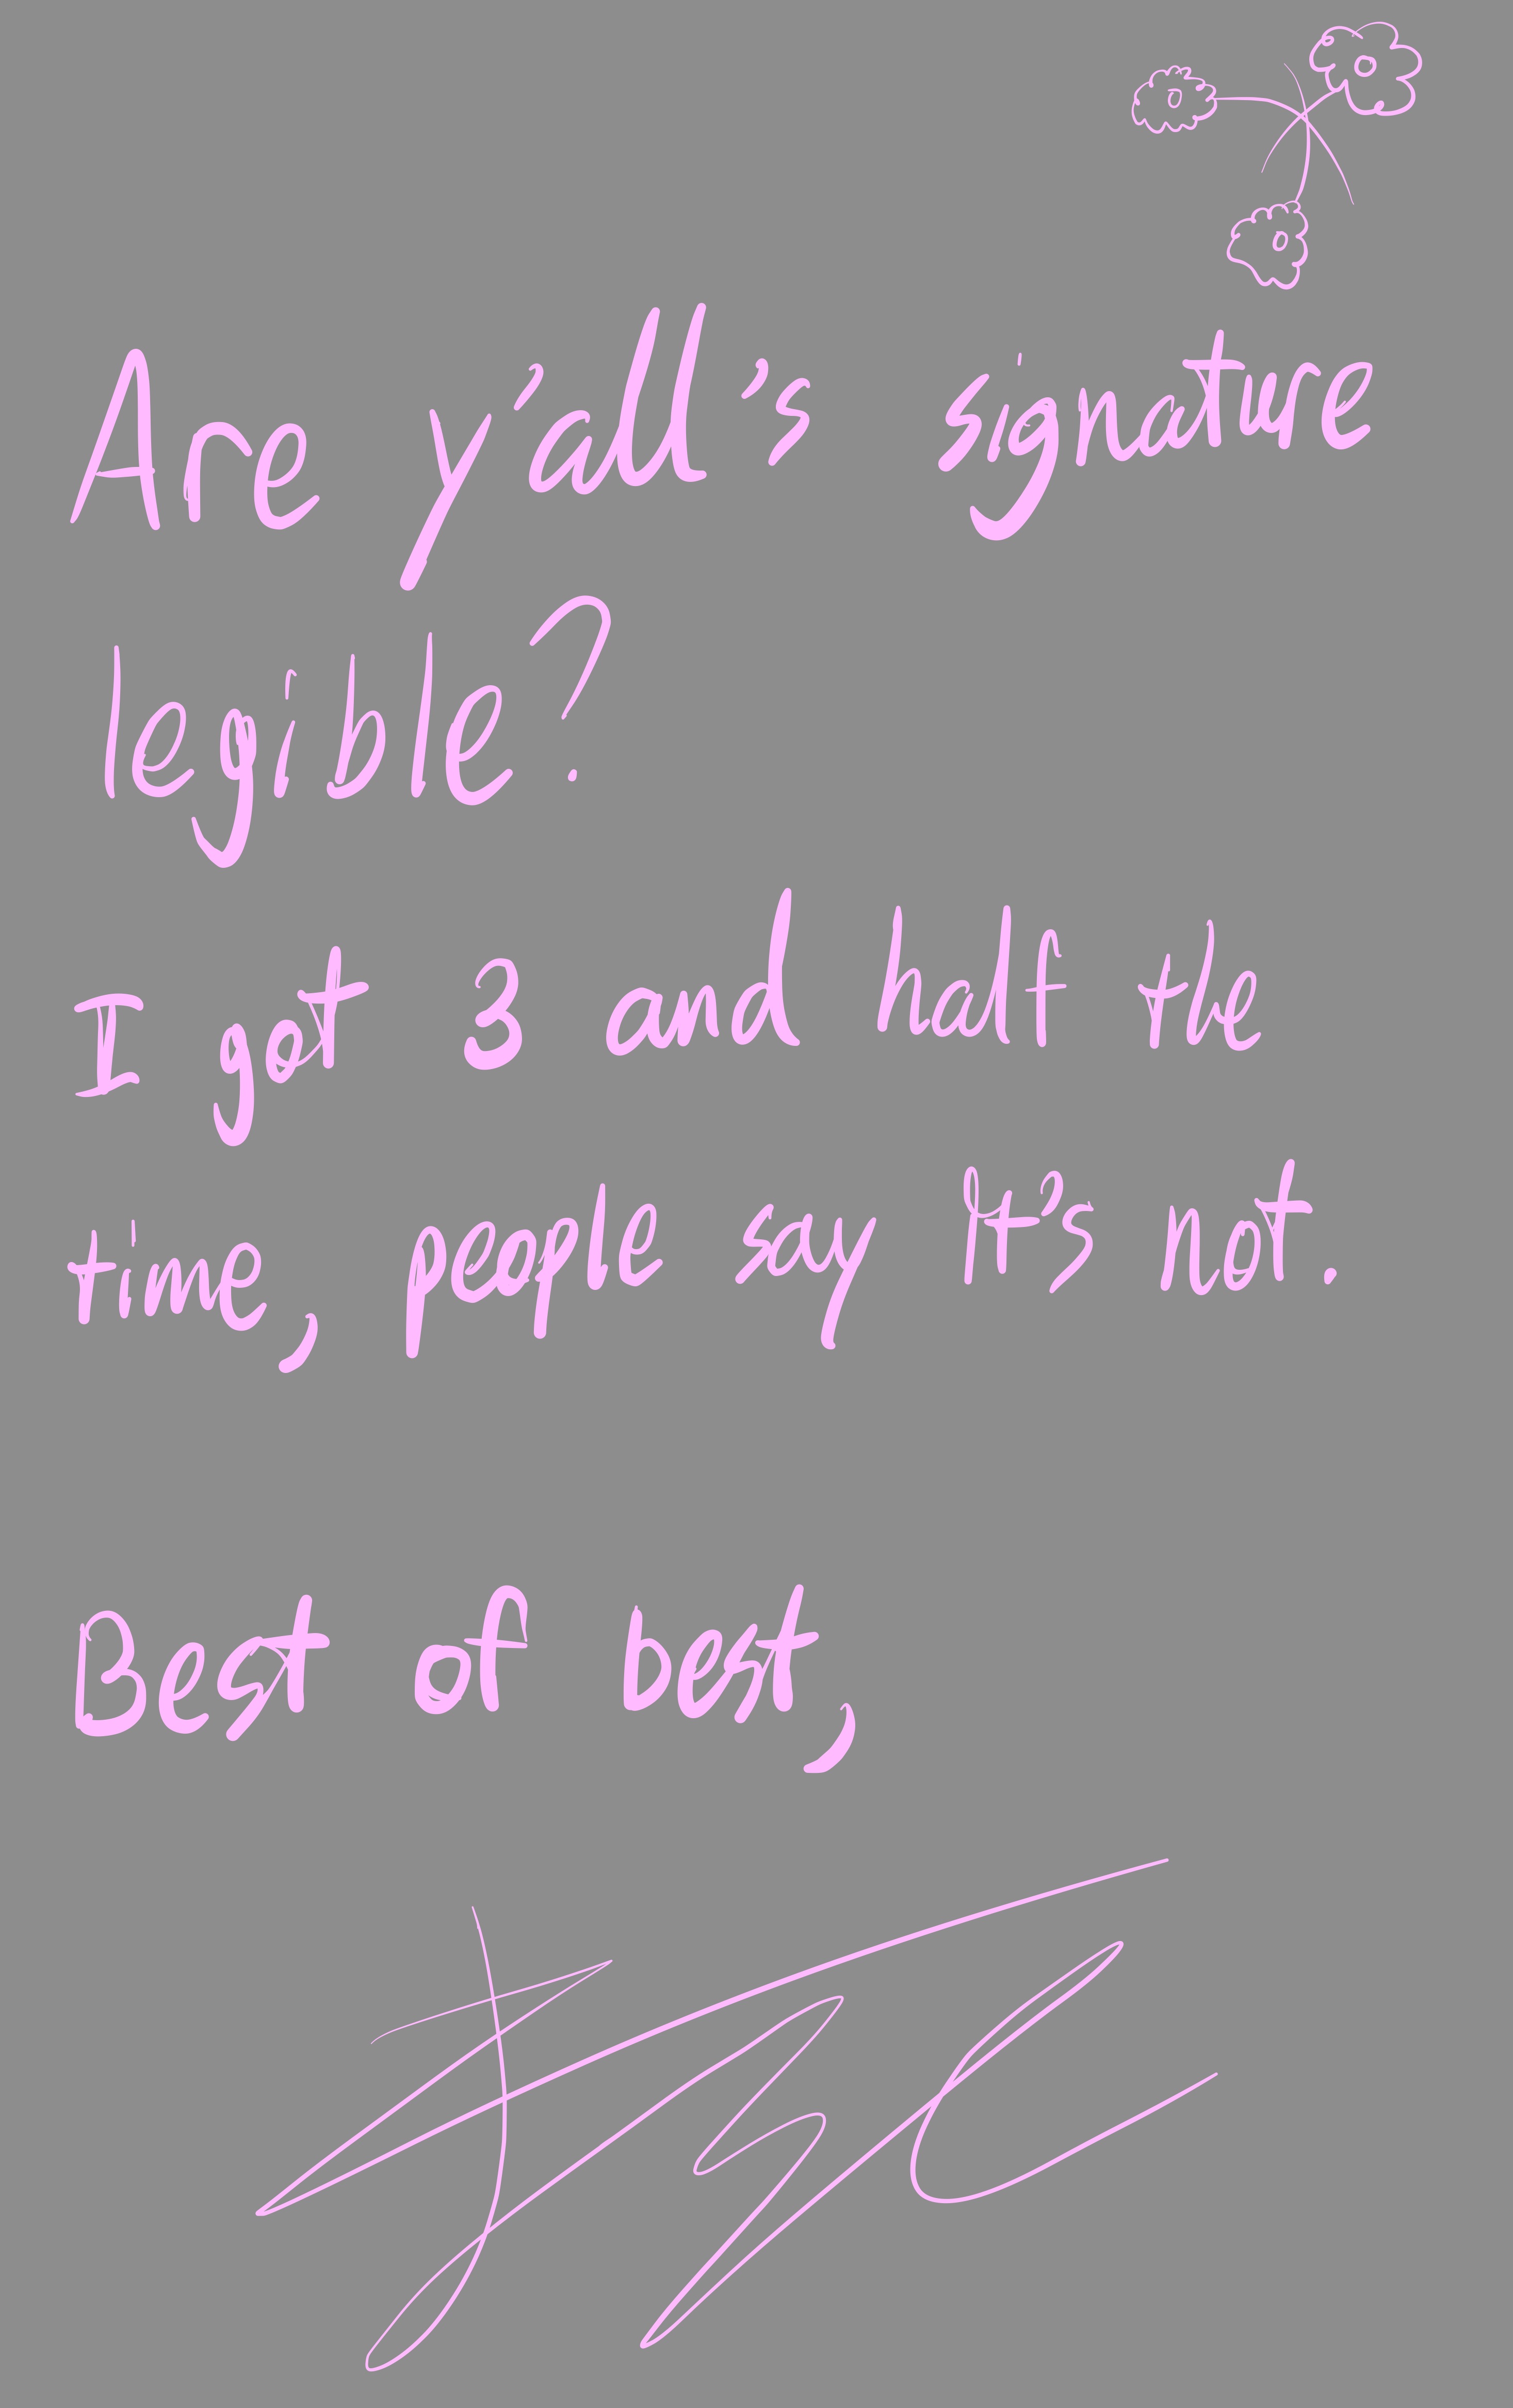 Are y'all's signature
legible?
I got 3 and half the
time, people say it's not.
Best of best,